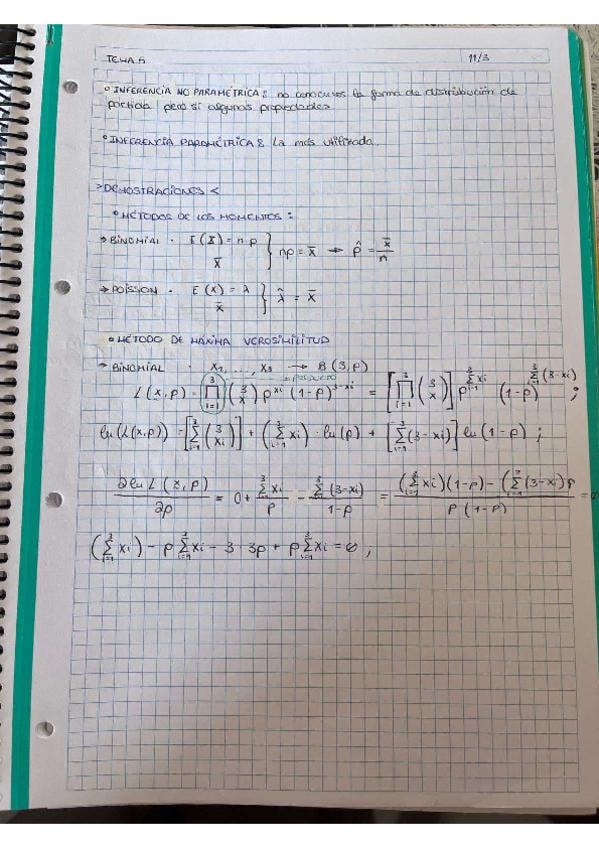 TEMA 5 11/3
• INFERENCIA NO PARAMÉTRICA: no conocemos la forma de distribución de
partida, pero sí algunas propiedades.
• INFERENCIA PARAMÉTRICA: La más utilizada.
> DEMOSTRACIONES <
• MÉTODOS DE LOS MOMENTOS:
→ BINOMIAL · E(X) = n p } np = x̄ → p̂ = x̄/n
x̄
→ POISSON · E(X) = λ } λ̂ = x̄
x̄
• MÉTODO DE MÁXIMA VEROSIMILITUD
→ BINOMIAL · X₁, ..., X₃ → B(3, p)
L(x, p) = ∏_{i=1}^{3} (3 x) p^{xi} (1-p)^{3-xi} = [∏_{i=1}^{3} (3 x)] p^{∑_{i=1}^{3} xi} (1-p)^{∑_{i=1}^{3} (3-xi)} ;
ln(L(x,p)) = [∑_{i=1}^{3} (3 xi)] + (∑_{i=1}^{3} xi) · ln(p) + [∑_{i=1}^{3} (3-xi)] ln(1-p) ;
∂ ln L(x, p)/∂p = 0 + ∑_{i=1}^{3} xi/p - ∑_{i=1}^{3} (3-xi)/1-p = (∑_{i=1}^{3} xi)(1-p) - (∑_{i=1}^{3} (3-xi)p/p(1-p) = 0
(∑_{i=1}^{3} xi) - p ∑_{i=1}^{3} xi - 3 · 3p + p ∑_{i=1}^{3} xi = 0 ;